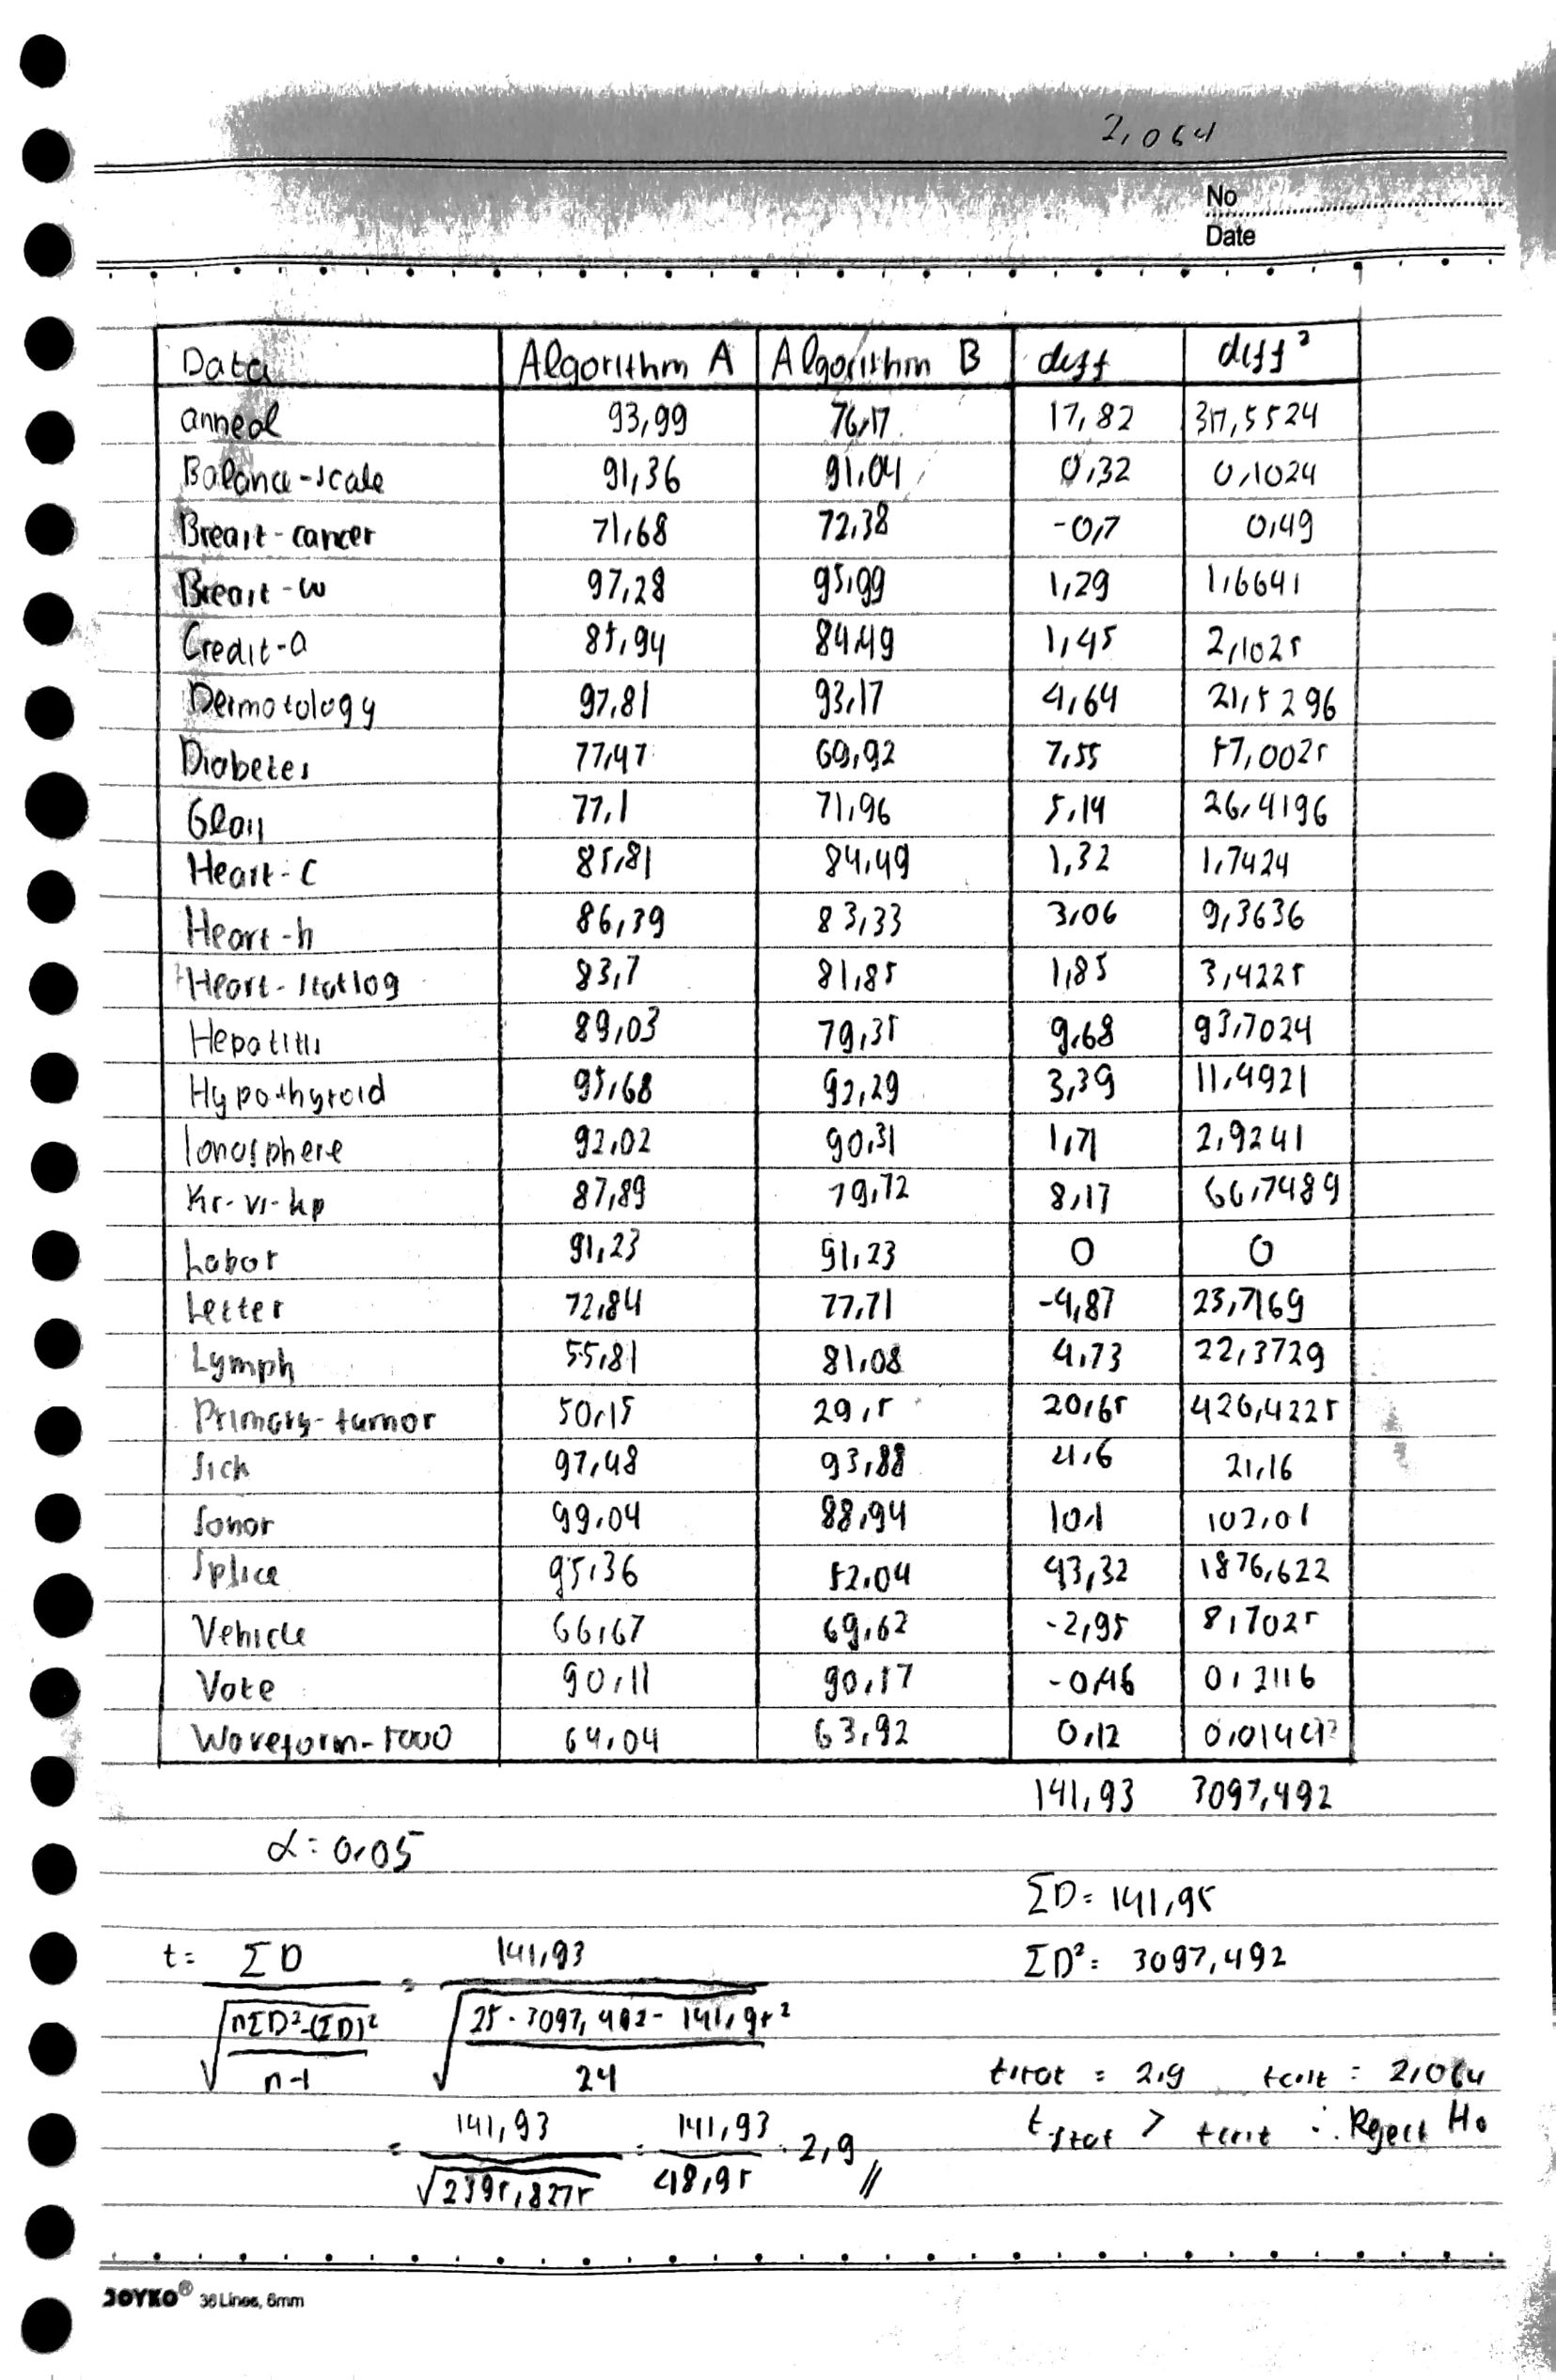 2,064
No
Date
Data Algorithm A Algorithm B diff diff²
anneal 93,99 76,17 17,82 317,5524
Balance-scale 91,36 91,04 0,32 0,1024
Breast-cancer 71,68 72,38 -0,7 0,49
Breast-w 97,28 95,99 1,29 1,6641
Credit-a 85,94 84,49 1,45 2,1025
Dermatology 97,81 93,17 4,64 21,5296
Diabetes 77,47 69,92 7,55 57,0025
Glass 77,1 71,96 5,14 26,4196
Heart-C 85,81 84,49 1,32 1,7424
Heart-h 86,39 83,33 3,06 9,3636
Heart-statlog 83,7 81,85 1,85 3,4225
Hepatitis 89,03 79,35 9,68 93,7024
Hypothyroid 95,68 92,29 3,39 11,4921
Ionosphere 92,02 90,31 1,71 2,9241
Kr-vs-kp 87,89 79,72 8,17 66,7489
Labor 91,23 91,23 0 0
Letter 72,84 77,71 -4,87 23,7169
Lymph 55,81 81,08 4,73 22,3729
Primary-tumor 50,15 29,5 20,65 426,4225
Sick 97,48 93,88 4,6 21,16
Sonor 99,04 88,94 10,1 102,01
Splice 95,36 52,04 43,32 1876,622
Vehicle 66,67 69,62 -2,95 8,7025
Vote 90,11 90,57 -0,46 0,2116
Waveform-5000 64,04 63,92 0,12 0,0144
141,93 3097,492
α = 0,05
ΣD = 141,95
t = ΣD / √((nΣD²-(ΣD)²)/(n-1)) = 141,93 / √((25 · 3097,492 - 141,95²)/24) ΣD² = 3097,492
tstat = 2,9 tcrit = 2,064
= 141,93 / √2395,8275 = 141,93 / 48,95 = 2,9 // tstat > tcrit ∴ Reject H₀
JOYKO® 36 Lines, 8mm